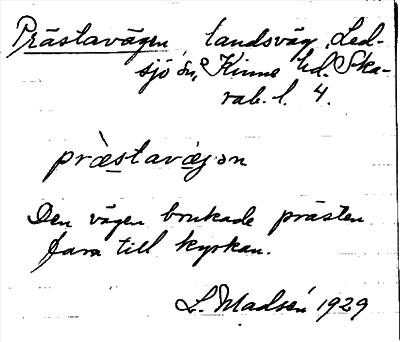 Prästavägen, landsväg, Led-
sjö sn, Kinne hd. Ska-
rab. l. 4.
præstavægon
Den vägen brukade prästen
fara till kyrkan.
L. Madsén 1929